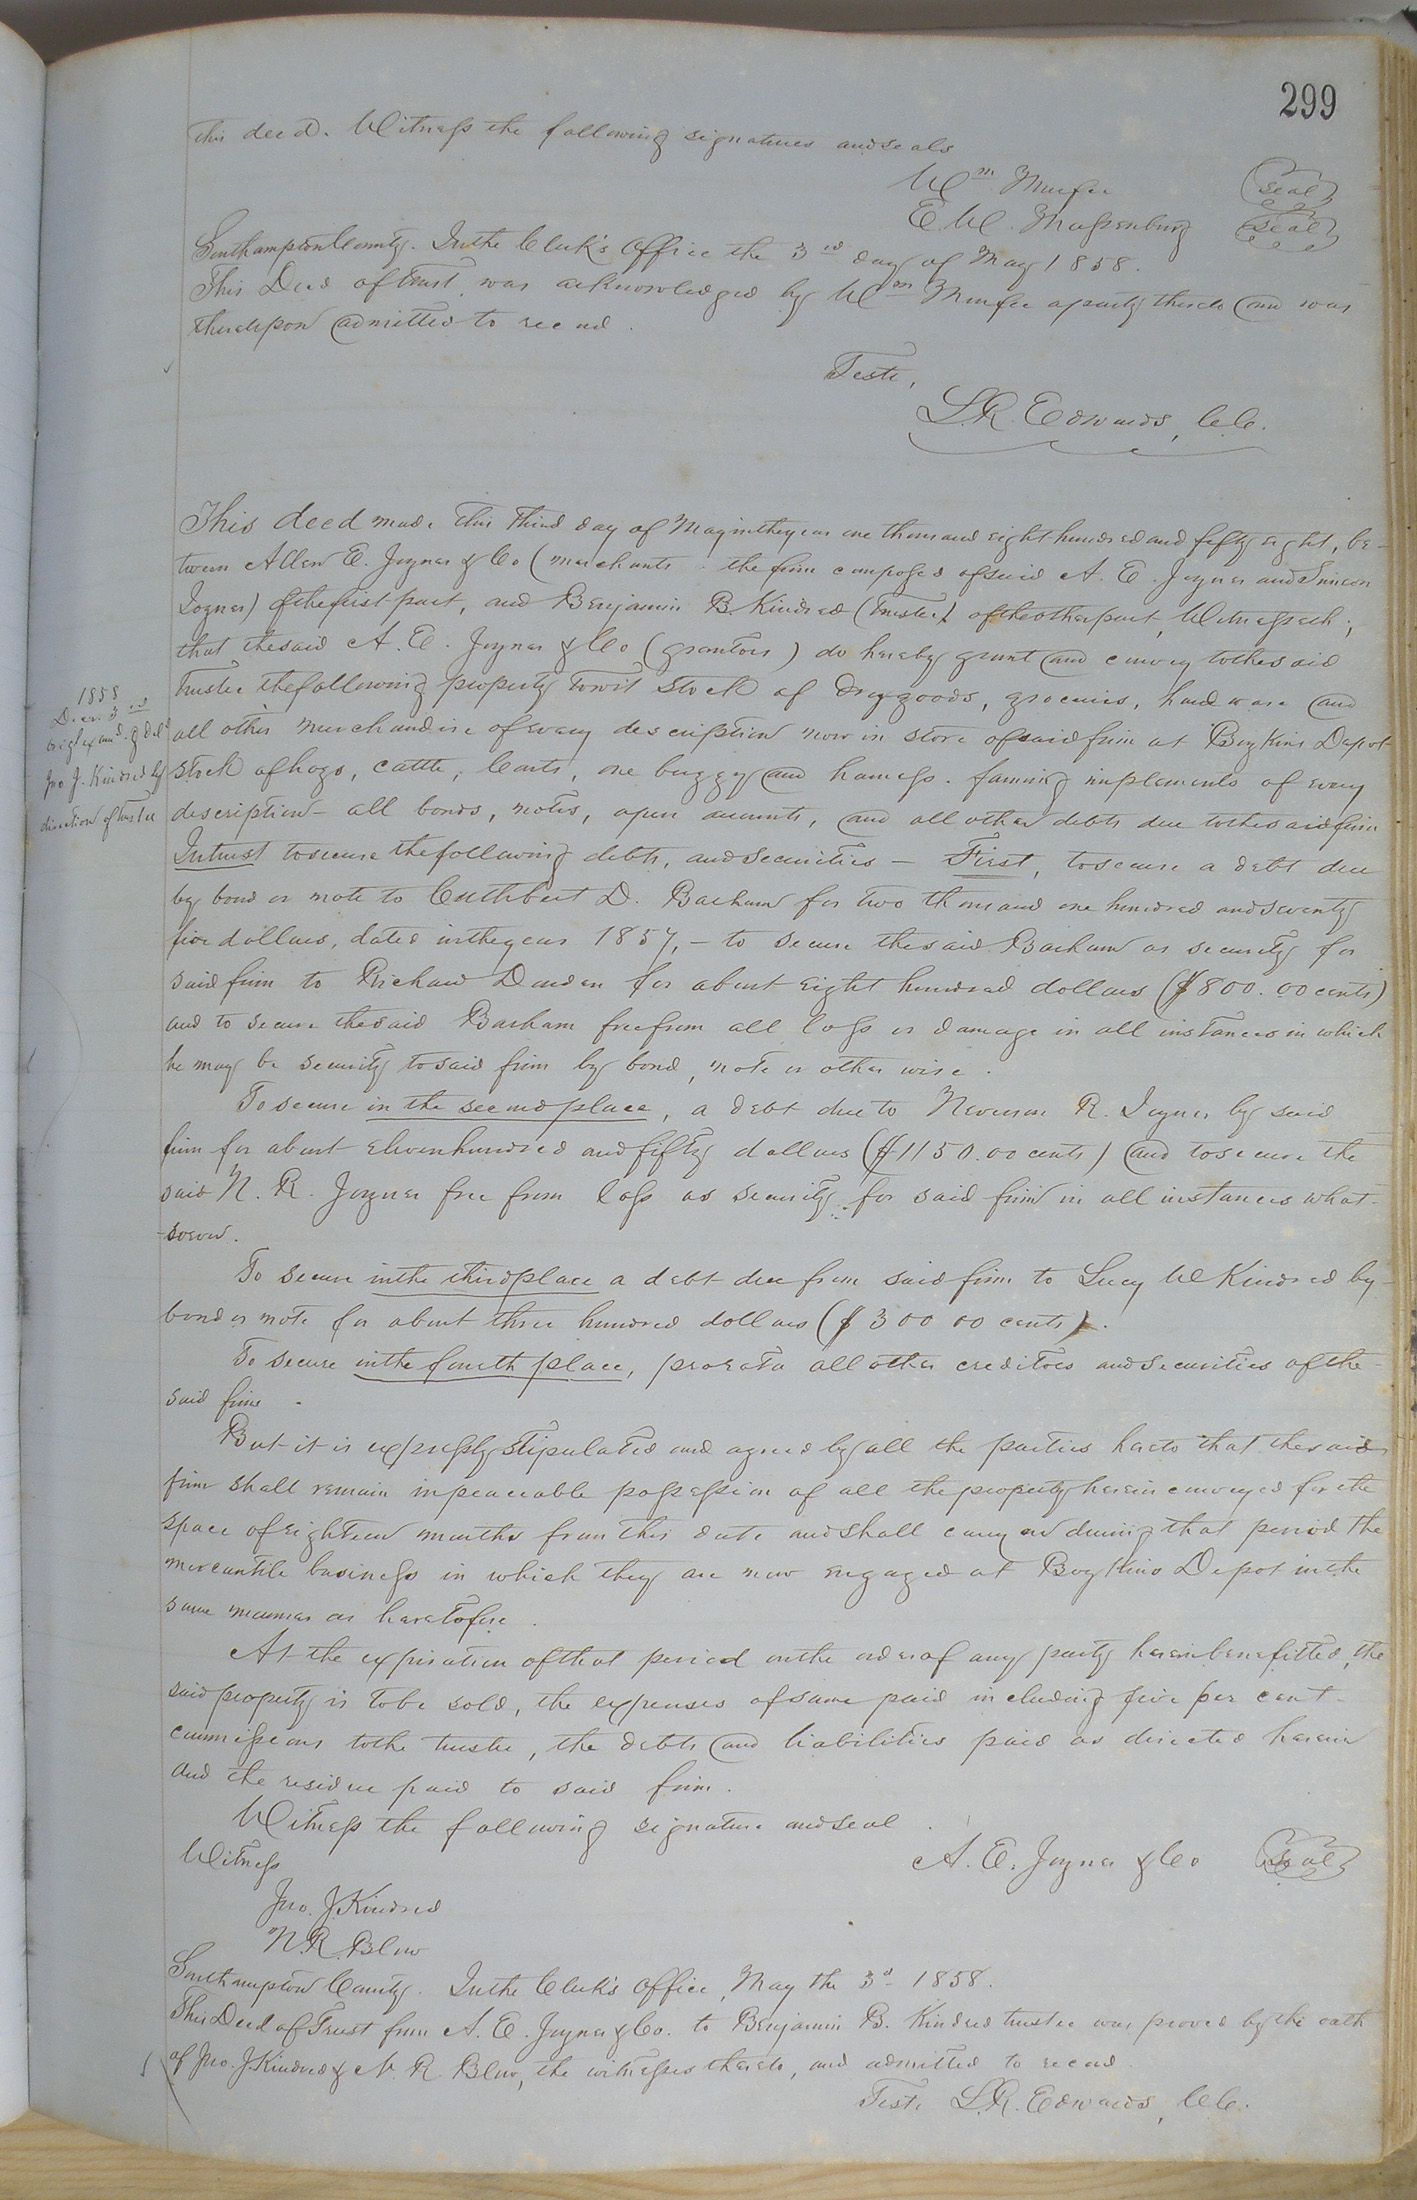 299
this deed. Witness the following signatures and seals
Wm Murfee (seal)
E. W. Massenburg (seal)
Southampton County. In the Clerk's Office the 3rd day of May 1858.
This Deed of trust was acknowledged by Wm Murfee a party thereto and was
thereupon admitted to record.
Teste,
L. R. Edwards, C.C.
This deed made this third day of May in the year one thousand eight hundred and fifty eight, be-
tween Allen E. Joyner & Co (merchants the firm composed of said A. E. Joyner and Simeon
Joyner) of the first part, and Benjamin B. Kindred (trustee) of the other part, Witnesseth;
that the said A. E. Joyner & Co (grantors) do hereby grant and convey to the said
trustee the following property towit Stock of dry goods, groceries, hard ware and
all other merchandise of every description now in store of said firm at Boykins Depot
Stock of hogs, cattle, Carts, one buggy and harness. farming implements of every
description - all bonds, notes, open accounts, and all other debts due to the said firm
In trust to secure the following debts, and securities - First, to secure a debt due
by bond or note to Cuthbert D. Barham for two thousand one hundred and seventy
five dollars, dated in the year 1857, - to secure the said Barham as security for
said firm to Richard Darden for about eight hundred dollars ($800.00 cents)
and to secure the said Barham free from all loss or damage in all instances in which
he may be security to said firm by bond, note or other wise.
To secure in the second place, a debt due to Neverson R. Joyner by said
firm for about eleven hundred and fifty dollars ($1150.00 cents) and to secure the
said N. R. Joyner free from loss as security for said firm in all instances what-
-soever.
To secure in the third place a debt due from said firm to Lucy W Kindred by
bond or note for about three hundred dollars ($300 00 cents).
To secure in the fourth place, pro rata all other creditors and securities of the
said firm -
But it is expressly stipulated and agreed by all the parties hereto that the said
firm shall remain in peaceable possession of all the property herein conveyed for the
space of eighteen months from this date and shall carry on during that period the
mercantile business in which they are now engaged at Boykins Depot in the
same manner as heretofore.
At the expiration of that period on the order of any party herein benefitted, the
said property is to be sold, the expenses of same paid including five per cent
commissions to the trustee, the debts and liabilities paid as directed herein
and the residue paid to said firm.
Witness the following signature and seal.
Witness A. E. Joyner & Co (seal)
Jno. J. Kindred
N. R. Blow
Southampton County. In the Clerk's Office, May the 3d 1858.
This Deed of Trust from A. E. Joyner & Co. to Benjamin B. Kindred trustee was proved by the oath
of Jno. J. Kindred & N. R. Blow, the witnesses thereto, and admitted to record.
Teste L. R. Edwards, C.C.
1858
Decr. 3rd
orig exmd. & del
Jno J. Kindred by
direction of trustee